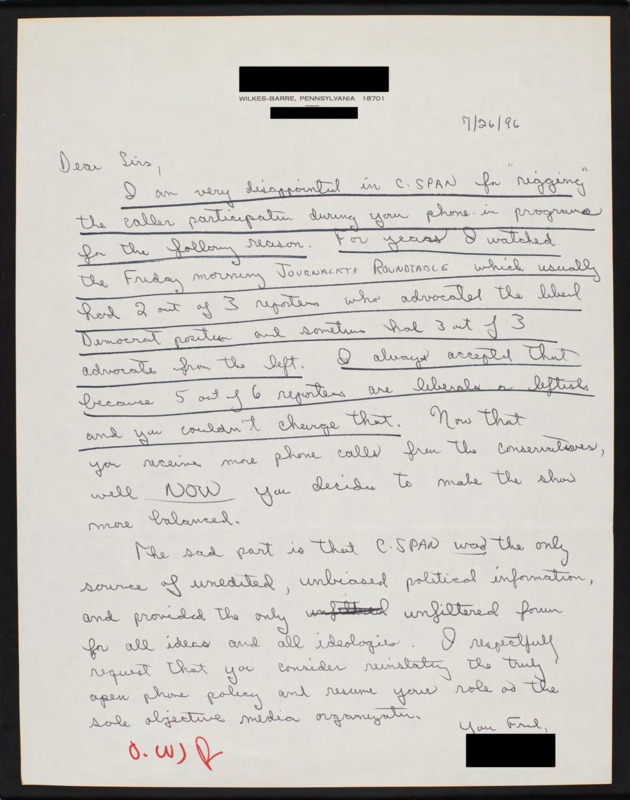 WILKES-BARRE, PENNSYLVANIA 18701
7/26/96
Dear Sirs,
I am very disappointed in C-SPAN for "rigging"
the caller participation during your phone-in programs
for the following reason. For years I watched
the Friday morning JOURNALISTS ROUNDTABLE which usually
had 2 out of 3 reporters who advocated the liberal
Democrat position and sometimes had 3 out of 3
advocate from the left. I always accepted that
because 5 out of 6 reporters are liberals or leftists
and you couldn't change that. Now that
you receive more phone calls from the conservatives,
well NOW you decide to make the show
more balanced.
The sad part is that C-SPAN was the only
source of unedited, unbiased political information,
and provided the only unfiltered forum
for all ideas and all ideologies. I respectfully
request that you consider reinstating the truly
open phone policy and resume your role as the
sole objective media organization.
Your Friend,